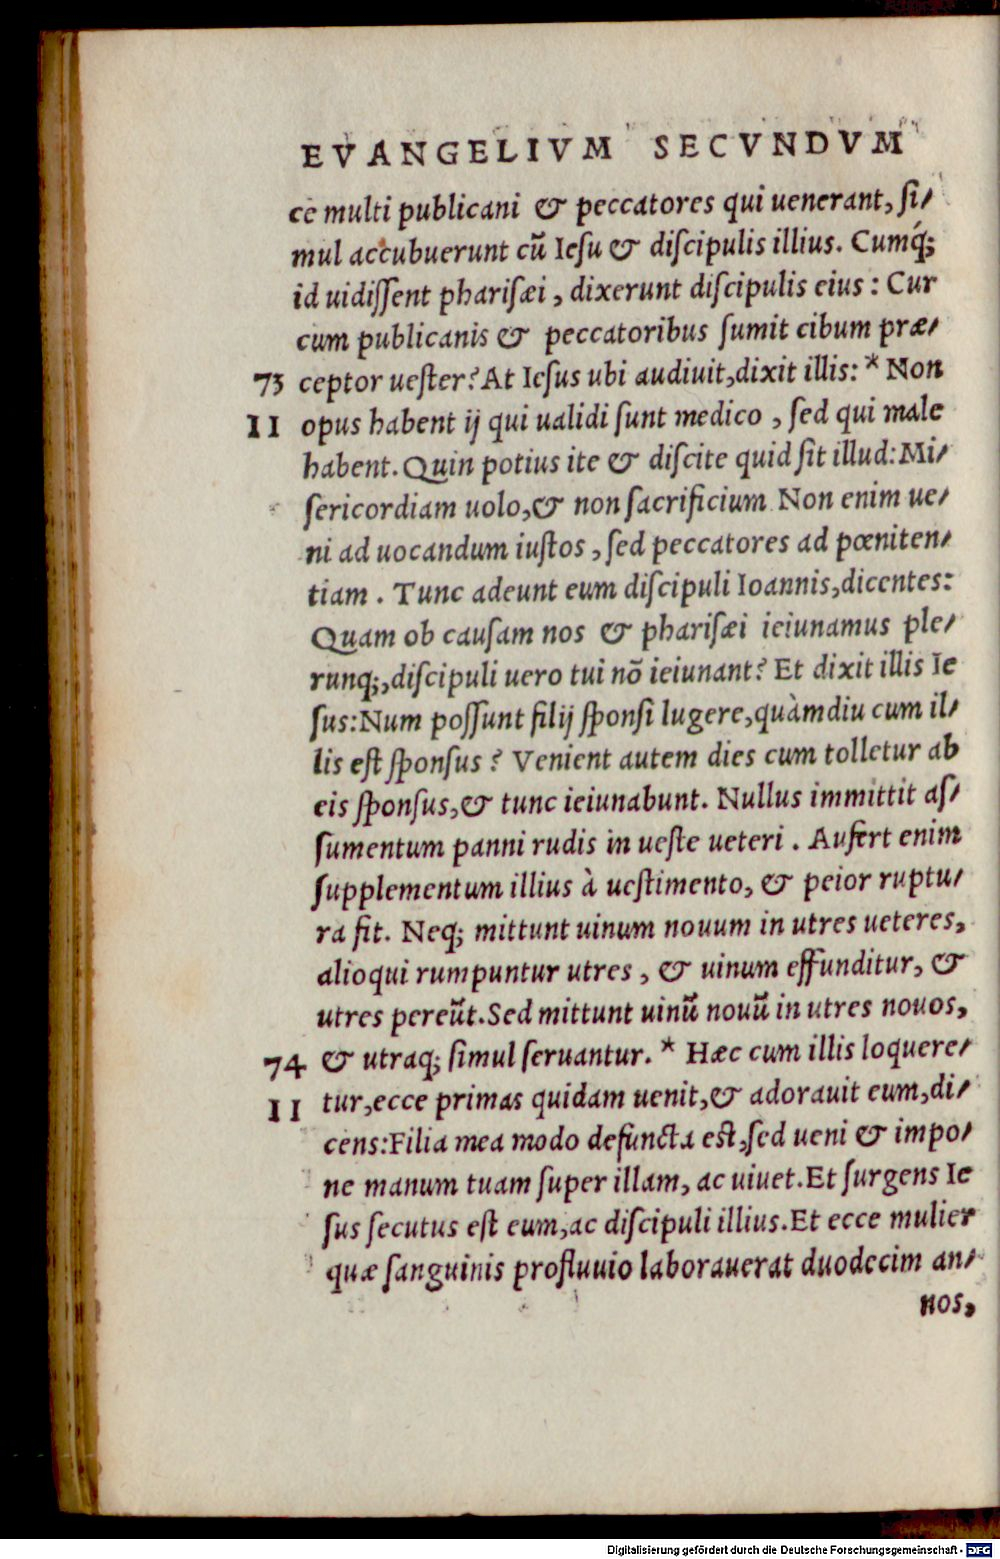 EVANGELIVM SECVNDVM
ce multi publicani & peccatores qui uenerant, ſi/
mul accubuerunt cū Ieſu & diſcipulis illius. Cumq́;
id uidiſſent phariſæi, dixerunt diſcipulis eius: Cur
cum publicanis & peccatoribus ſumit cibum præ/
73 ceptor ueſter? At Ieſus ubi audiuit, dixit illis: * Non
II opus habent ij qui ualidi ſunt medico, ſed qui male
habent. Quin potius ite & diſcite quid ſit illud: Mi/
ſericordiam uolo, & non ſacrificium. Non enim ue/
ni ad uocandum iuſtos, ſed peccatores ad pœniten/
tiam. Tunc adeunt eum diſcipuli Ioannis, dicentes:
Quam ob cauſam nos & phariſæi ieiunamus ple/
runq;, diſcipuli uero tui nō ieiunant? Et dixit illis Ie
ſus: Num poſſunt filij ſponſi lugere, quàmdiu cum il/
lis eſt ſponſus? Venient autem dies cum tolletur ab
eis ſponſus, & tunc ieiunabunt. Nullus immittit aſ/
ſumentum panni rudis in ueſte ueteri. Aufert enim
ſupplementum illius à ueſtimento, & peior ruptu/
ra fit. Neq; mittunt uinum nouum in utres ueteres,
alioqui rumpuntur utres, & uinum effunditur, &
utres pereūt. Sed mittunt uinū nouū in utres nouos,
74 & utraq; ſimul ſeruantur. * Hæc cum illis loquere/
II tur, ecce primas quidam uenit, & adorauit eum, di/
cens: Filia mea modo defuncta eſt, ſed ueni & impo/
ne manum tuam ſuper illam, ac uiuet. Et ſurgens Ie
ſus ſecutus eſt eum, ac diſcipuli illius. Et ecce mulier
quæ ſanguinis profluuio laborauerat duodecim an/
nos,
Digitalisierung gefördert durch die Deutsche Forschungsgemeinschaft - DFG